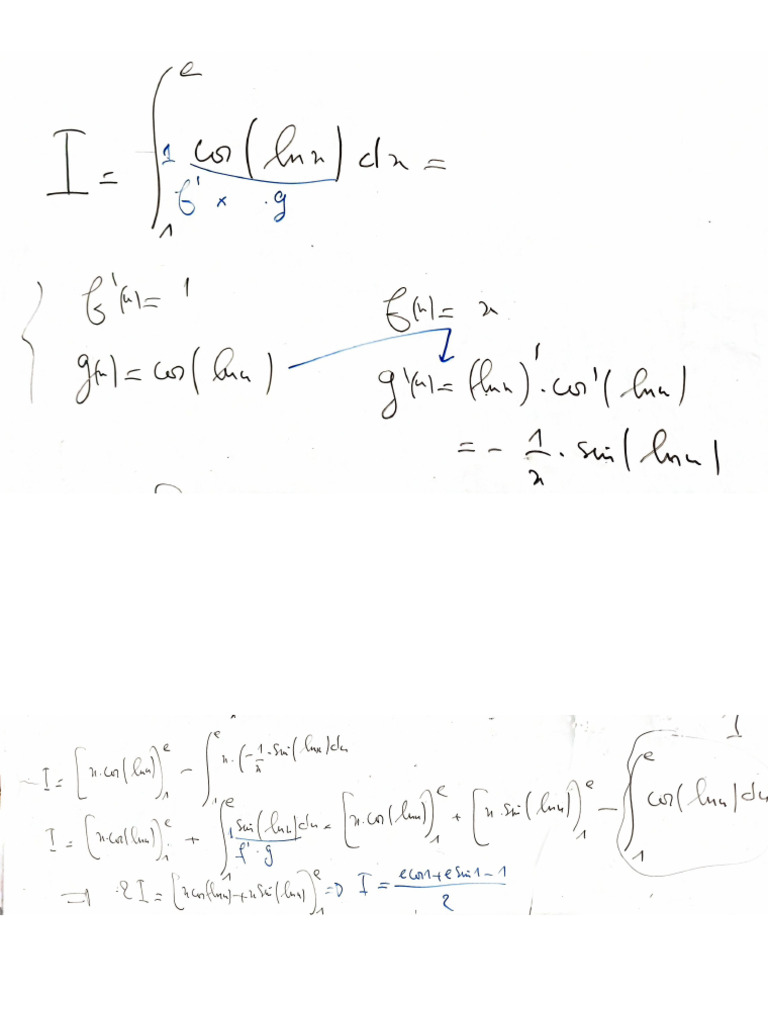 I = ∫₁ᵉ 1 cos(ln x) dx =
f' × . g
f'(x) = 1    f(x) = x
g(x) = cos(ln x)    g'(x) = (ln x)' . cos'(ln x)
= - 1/x . sin(ln x)
I
- I = [x.cos(ln x)]₁ᵉ - ∫₁ᵉ x.(-1/x . sin(ln x) dx
I = [x.cos(ln x)]₁ᵉ + ∫₁ᵉ 1 sin(ln x) dx = [x.cos(ln x)]₁ᵉ + [x.sin(ln x)]₁ᵉ - ∫₁ᵉ cos(ln x) dx
f' . g
⇒ 2I = [x cos(ln x) + x sin(ln x)]₁ᵉ ⇒ I = (e cos 1 + e sin 1 - 1)/2